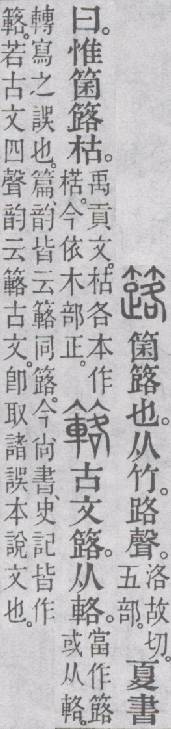 簬 箘簬也。从竹。路聲。洛故切。五部。夏書
曰。惟箘簬枯。禹貢文。枯各本作楛。今依木部正。簵 古文簬。从輅。當作簬或从輅。
轉寫之誤也。篇、韵皆云簵同簬。今尙書、史記皆作
簵。若古文四聲韵云簵古文。卽取諸誤本說文也。